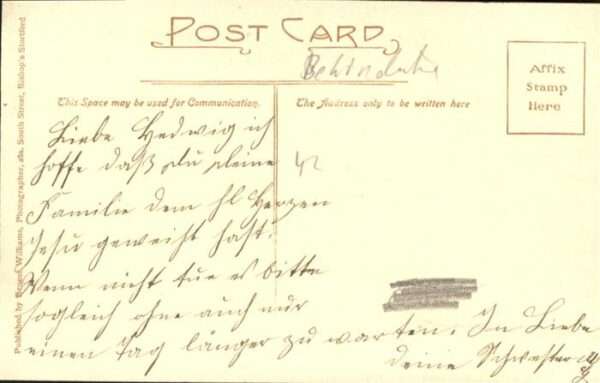 POST CARD
This Space may be used for Communication.
The Address only to be written here
Affix
Stamp
Here
Liebe Hedwig ich
hoffe daß du deine
Familie dem hl Herzen
Jesu geweiht hast.
Wenn nicht tue es bitte
sogleich ohne auch nur
einen Tag länger zu warten. In Liebe
deine Schwester
42
Published by Williams, Photographer, 28a, South Street, Bishop's Stortford